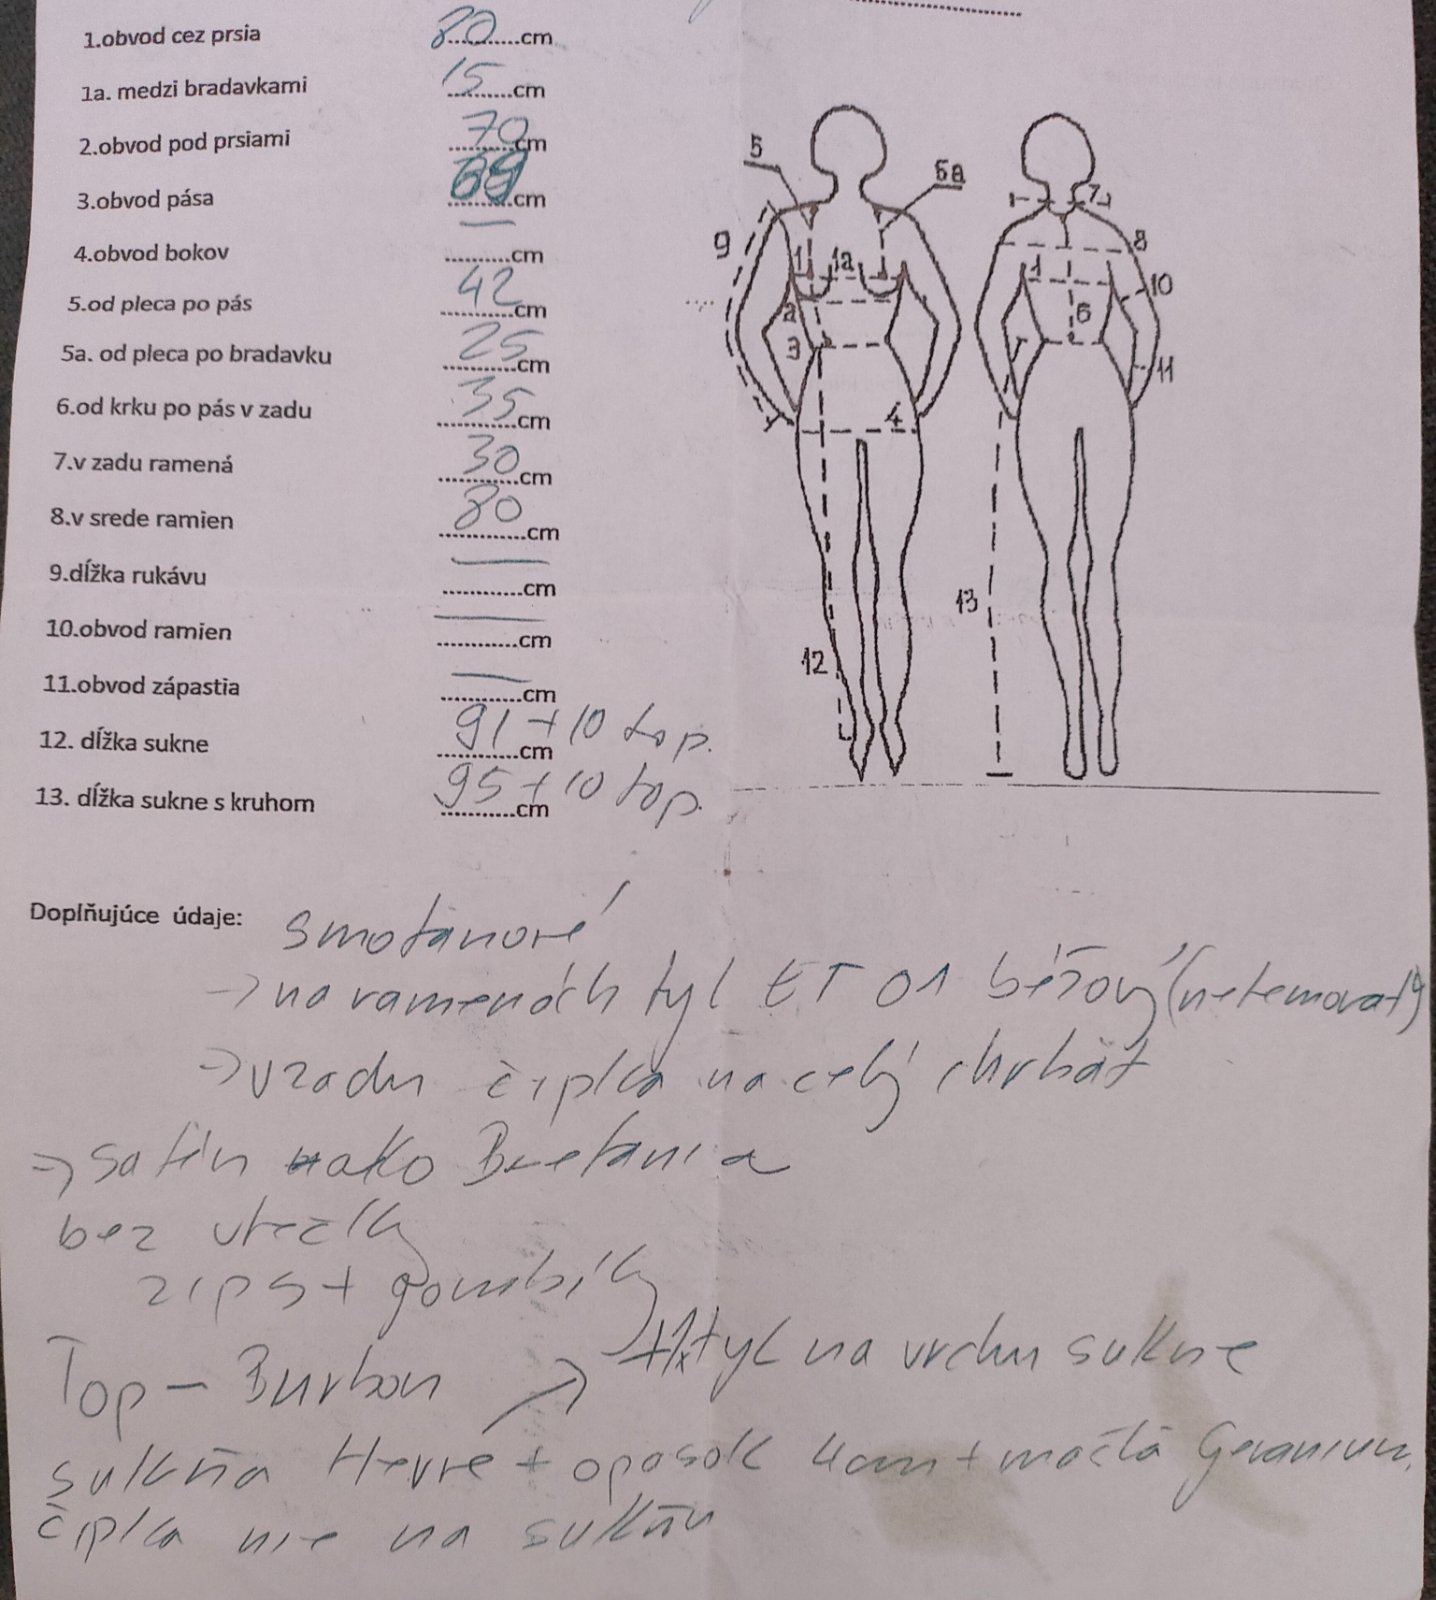 1.obvod cez prsia 80 cm
1a. medzi bradavkami 15 cm
2.obvod pod prsiami 70 cm
3.obvod pása 69 cm
4.obvod bokov — cm
5.od pleca po pás 42 cm
5a. od pleca po bradavku 25 cm
6.od krku po pás v zadu 35 cm
7.v zadu ramená 30 cm
8.v srede ramien 80 cm
9.dĺžka rukávu — cm
10.obvod ramien — cm
11.obvod zápastia — cm
12. dĺžka sukne 91 + 10 top. cm
13. dĺžka sukne s kruhom 95 + 10 top. cm
5
5a
7
9
8
1
1a
1
10
2
6
3
11
4
13
12
Doplňujúce údaje: smotanové
→ na ramenách tyl ET 01 béžový (netemovať)
→ vzadu čipka na celý chrbát
→ satén ako Bretania
bez vtečky
zips + gombíky
+1x tyl na vrchu sukne
Top – Burbon
sukňa Hevre + opasok 4cm + mačla Geranium.
čipka nie na sukňu